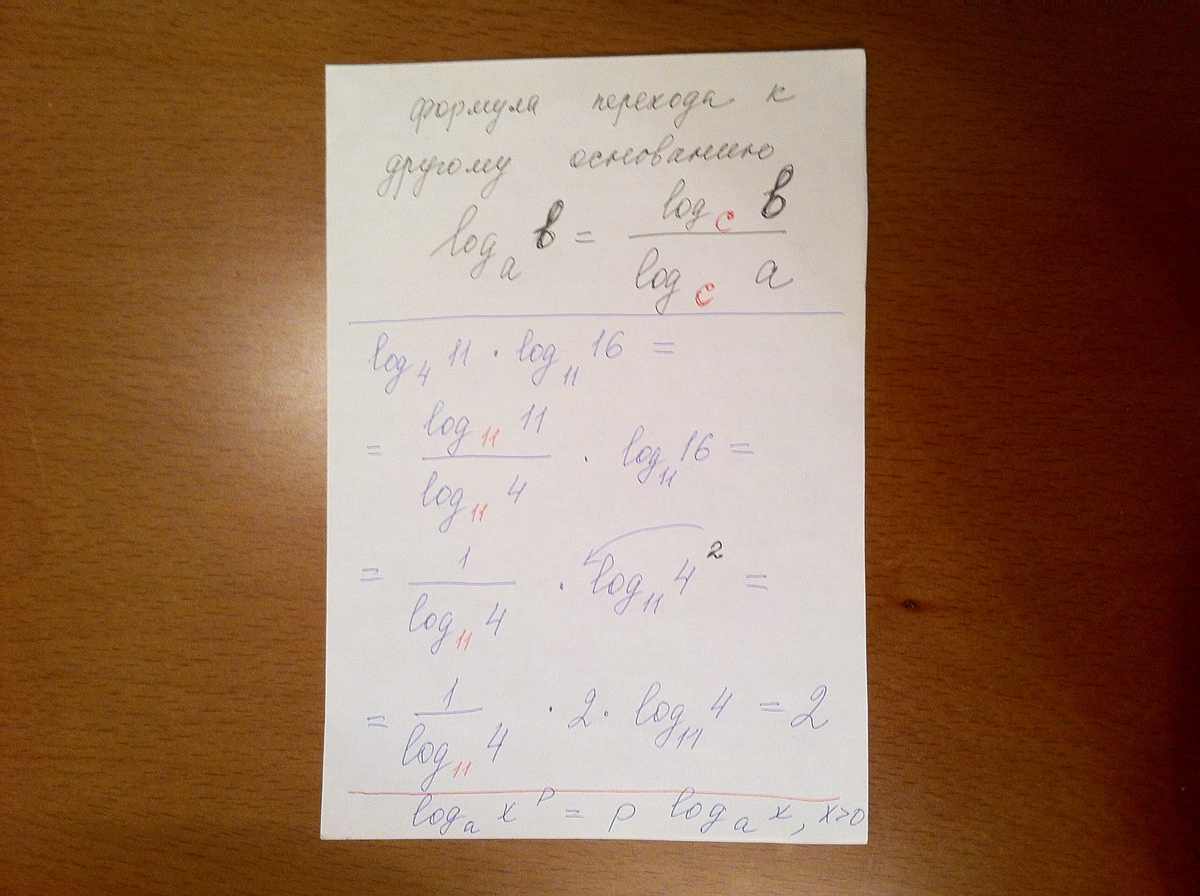 формула перехода к
другому основанию
log_a b = log_c b / log_c a
log_4 11 · log_11 16 =
= log_11 11 / log_11 4 · log_11 16 =
= 1 / log_11 4 · log_11 4^2 =
= 1 / log_11 4 · 2 · log_11 4 = 2
log_a x^p = p log_a x, x>0